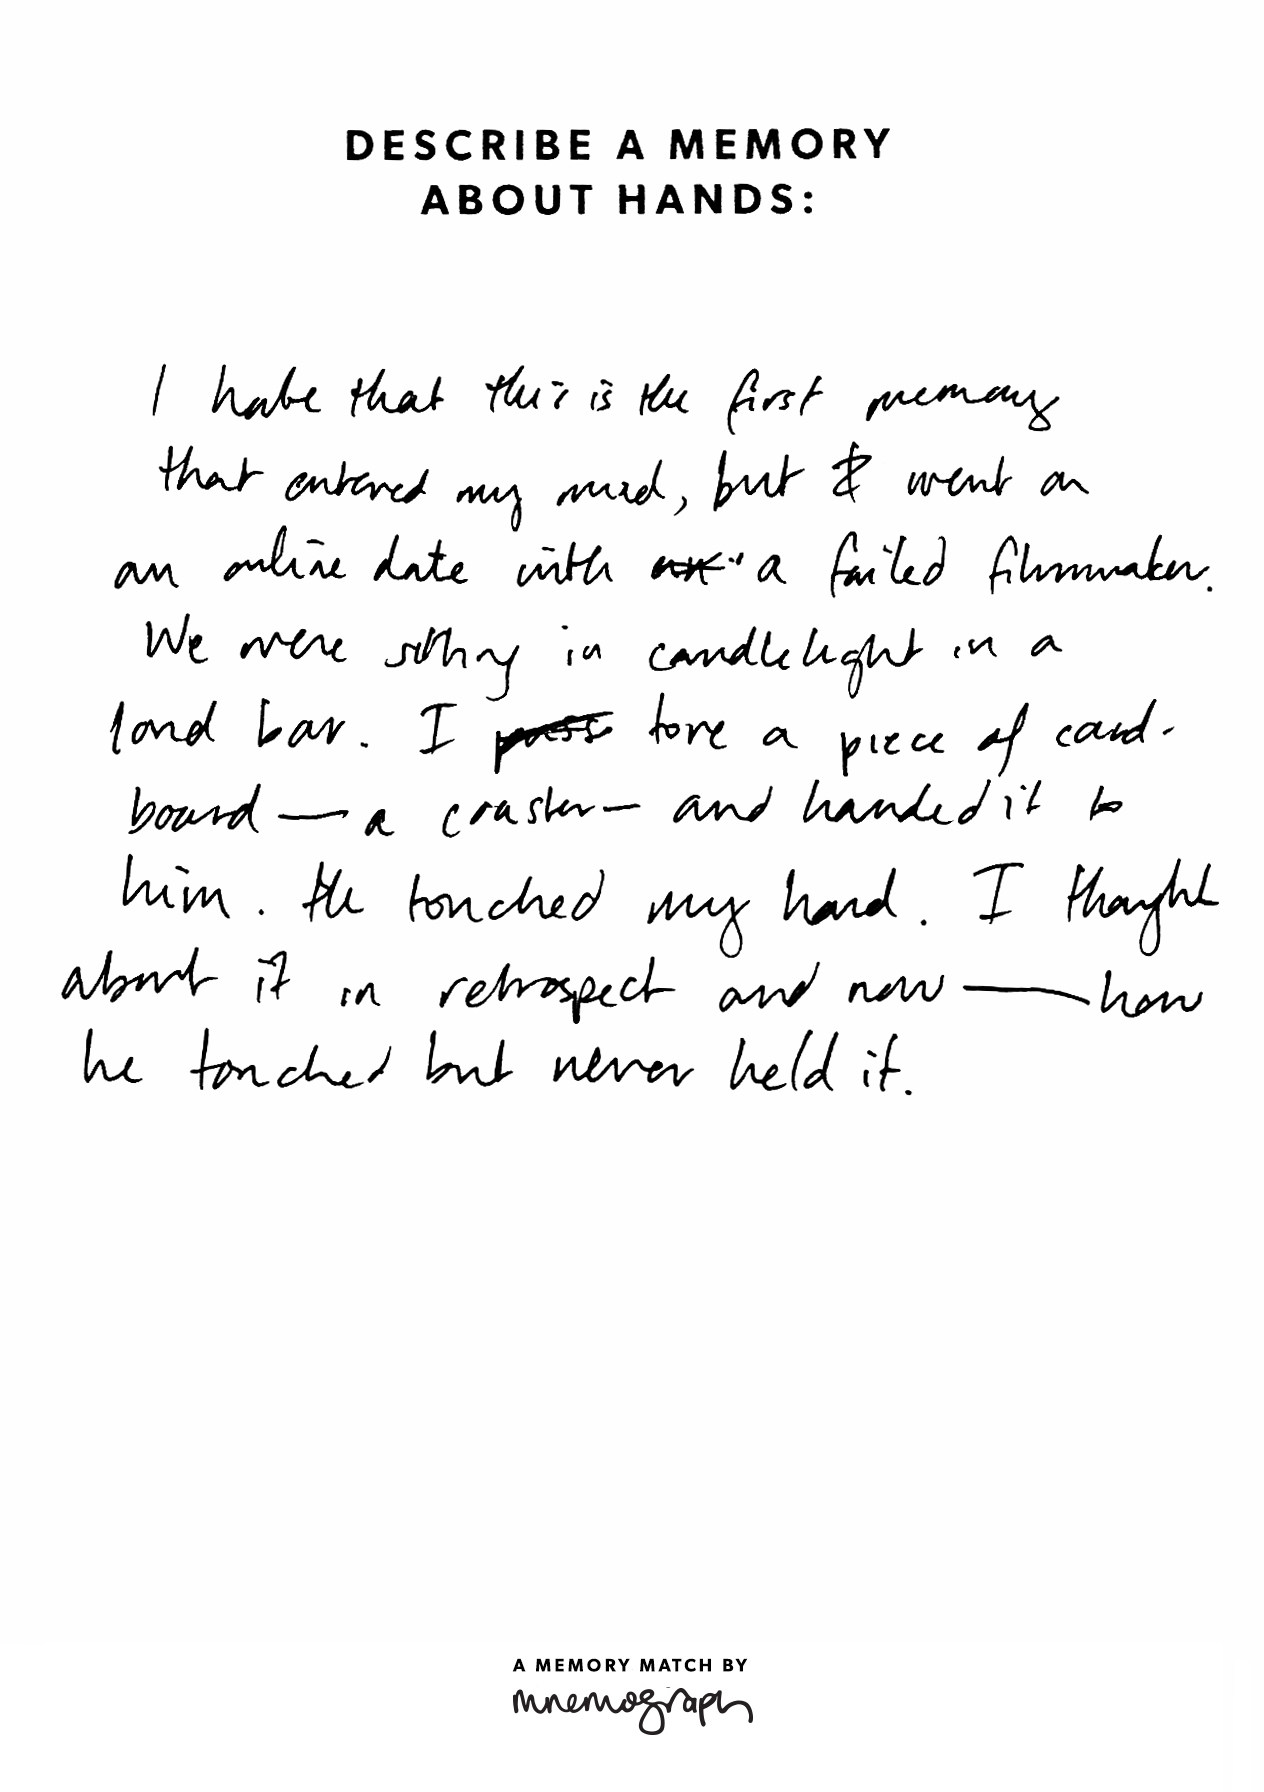 DESCRIBE A MEMORY
ABOUT HANDS:
I hate that this is the first memory
that entered my mind, but I went on
an online date with a failed filmmaker.
We were sitting in candlelight in a
loud bar. I pass tore a piece of card-
board — a coaster — and handed it to
him. He touched my hand. I thought
about it in retrospect and now — how
he touched but never held it.
A MEMORY MATCH BY
mnemograph